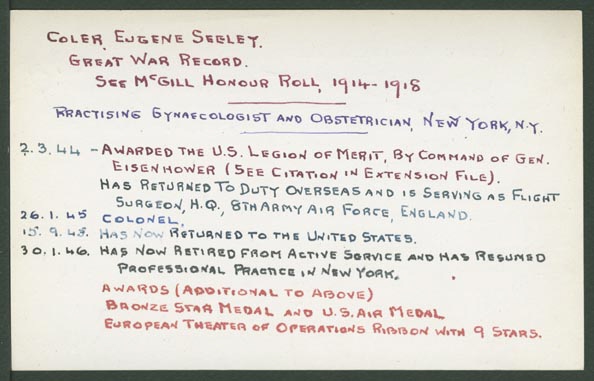 COLER, EUGENE SEELEY.
GREAT WAR RECORD.
SEE McGILL HONOUR ROLL, 1914-1918
PRACTISING GYNAECOLOGIST AND OBSTETRICIAN, NEW YORK, N.Y.
2.3.44 - AWARDED THE U.S. LEGION OF MERIT, BY COMMAND OF GEN.
EISENHOWER (SEE CITATION IN EXTENSION FILE).
HAS RETURNED TO DUTY OVERSEAS AND IS SERVING AS FLIGHT
SURGEON, H.Q., 8TH ARMY AIR FORCE, ENGLAND.
26.1.45 COLONEL.
15.9.45. HAS NOW RETURNED TO THE UNITED STATES.
30.1.46. HAS NOW RETIRED FROM ACTIVE SERVICE AND HAS RESUMED
PROFESSIONAL PRACTICE IN NEW YORK.
AWARDS (ADDITIONAL TO ABOVE)
BRONZE STAR MEDAL AND U.S. AIR MEDAL
EUROPEAN THEATER OF OPERATIONS RIBBON WITH 9 STARS.